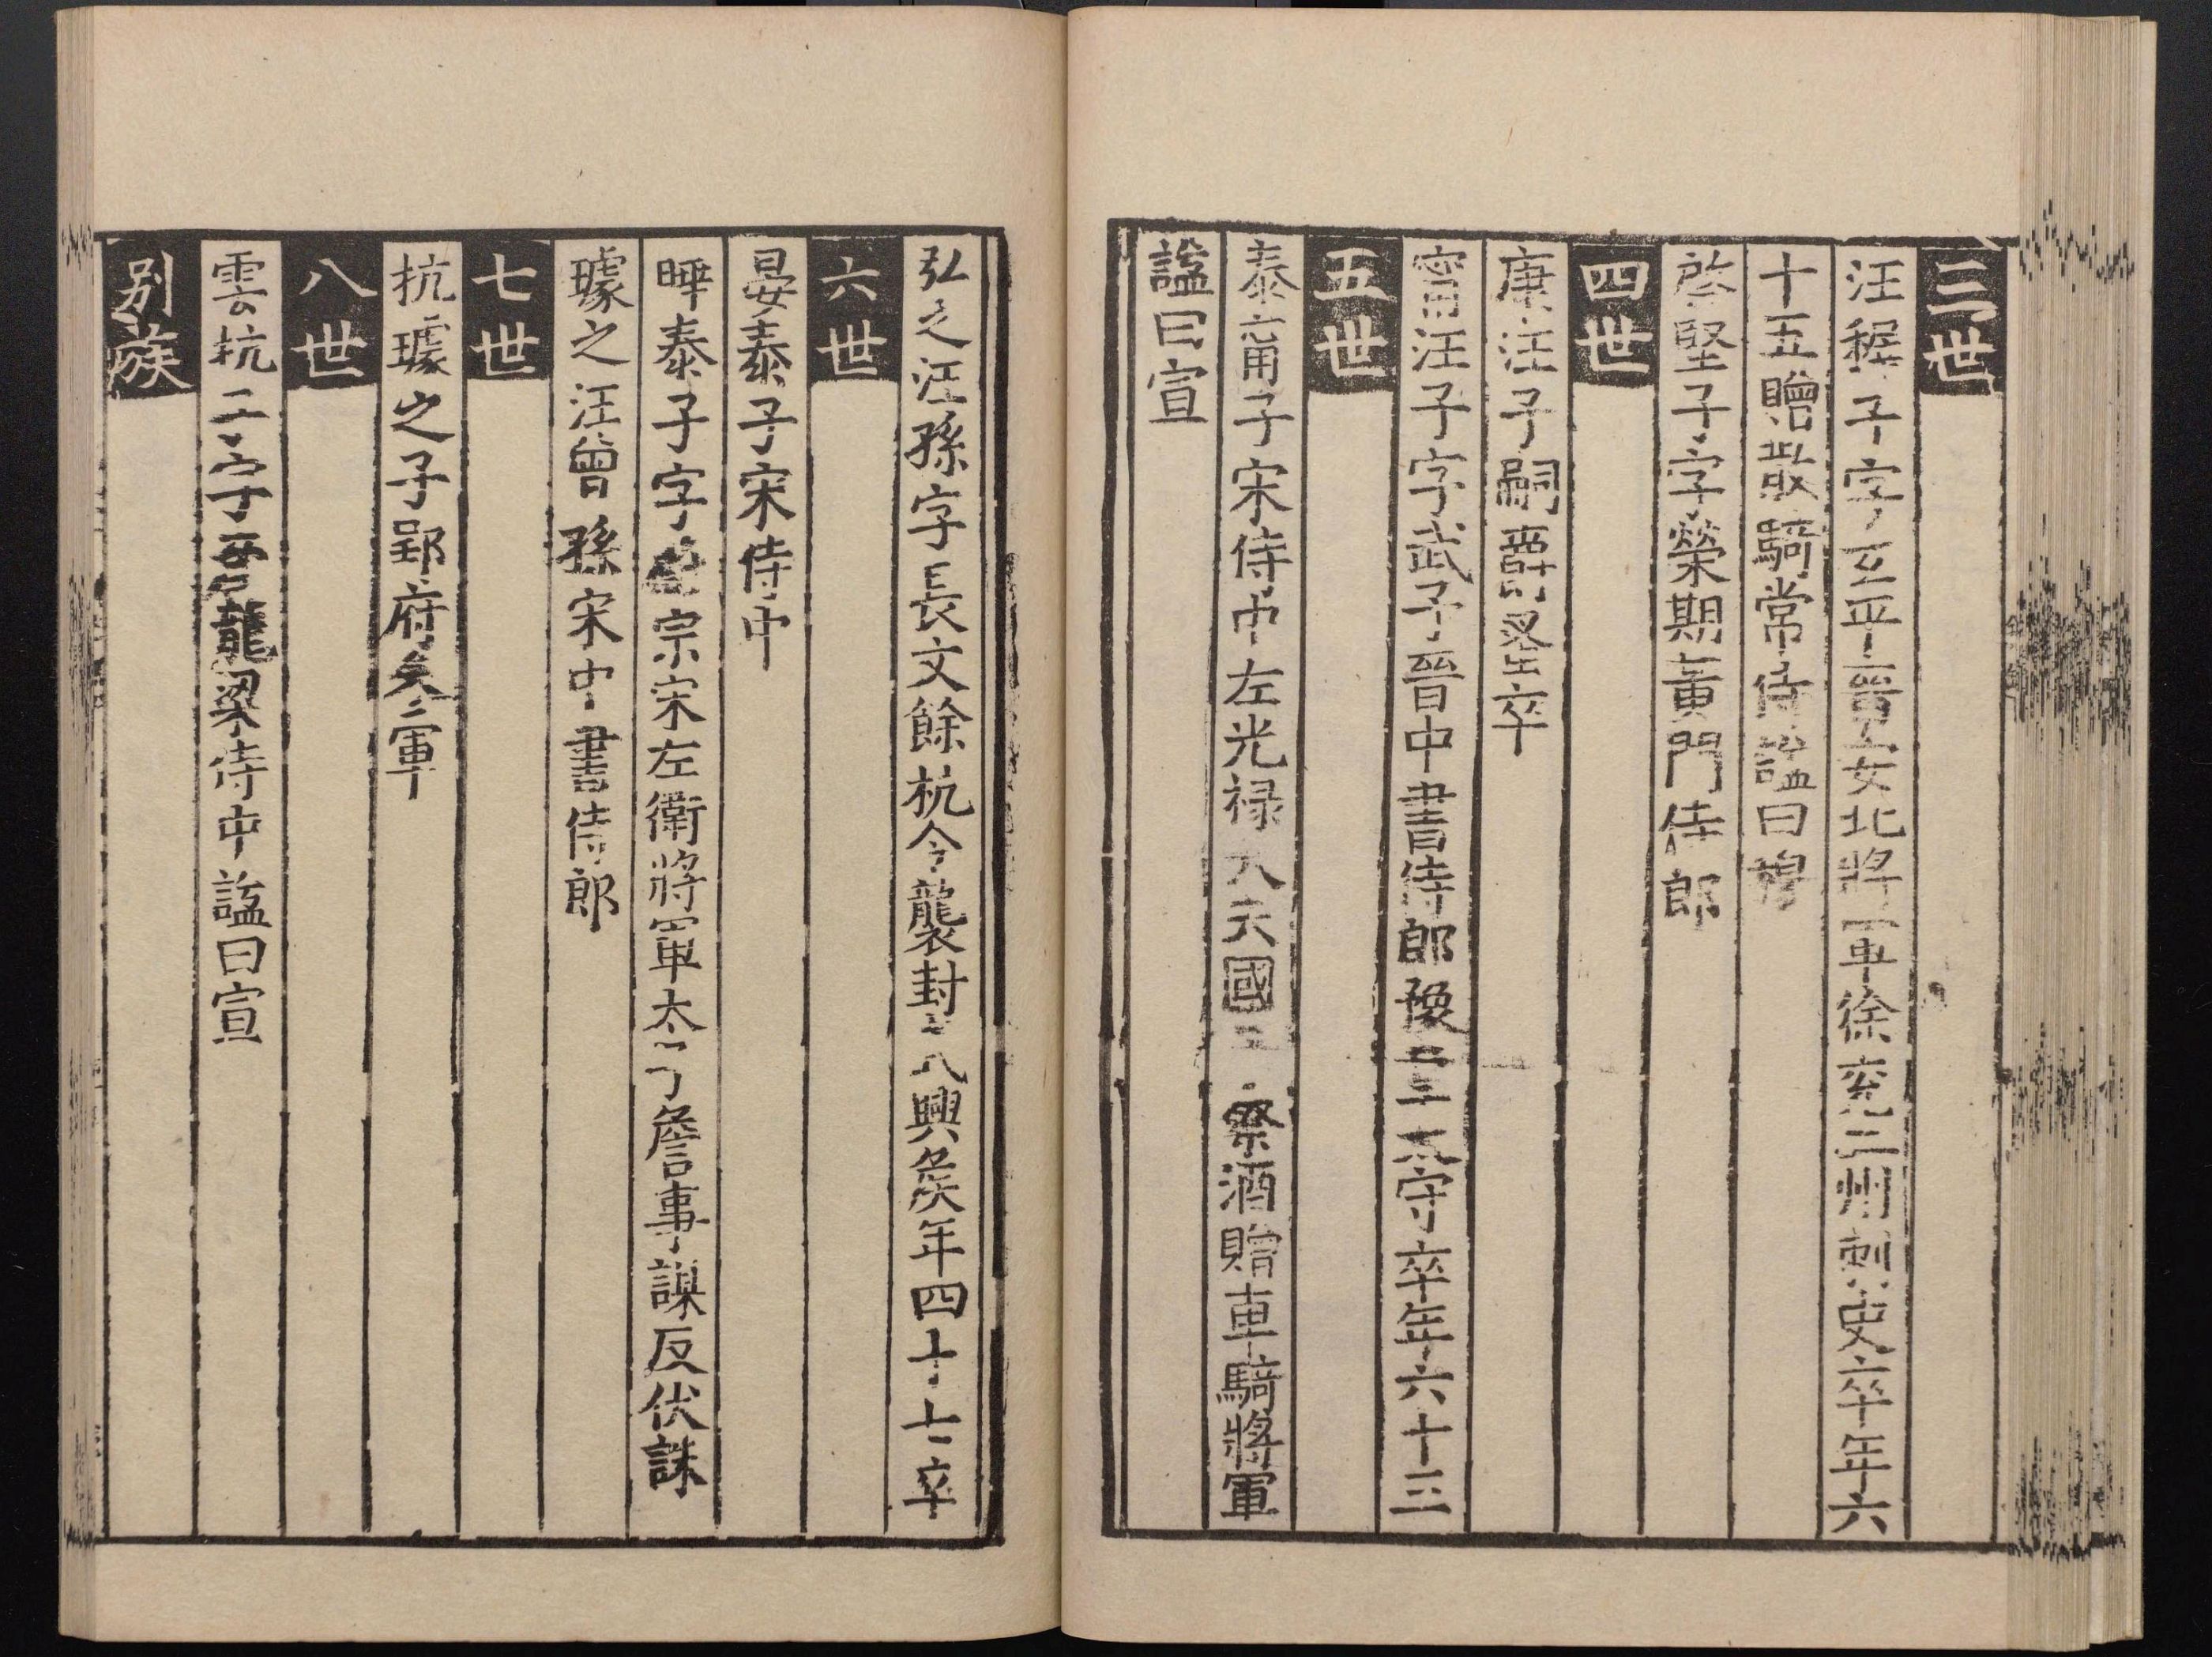 三世
汪稚子字玄平晉安北將軍徐兗二州刺史卒年六
十五贈散騎常侍謚曰穆
啓堅子字榮期黃門侍郎
四世
康汪子嗣爵蚤卒
甯汪子字武子晉中書侍郎豫章太守卒年六十三
五世
泰甯子宋侍中左光祿大夫國子祭酒贈車騎將軍
謚曰宣
弘之汪孫字長文餘杭令襲封武興侯年四十七卒
六世
晏泰子宋侍中
曄泰子字蔚宗宋左衛將軍太子詹事謀反伏誅
璩之汪曾孫宋中書侍郎
七世
抗璩之子郢府參軍
八世
雲抗子字彥龍梁侍中謚曰宣
別族